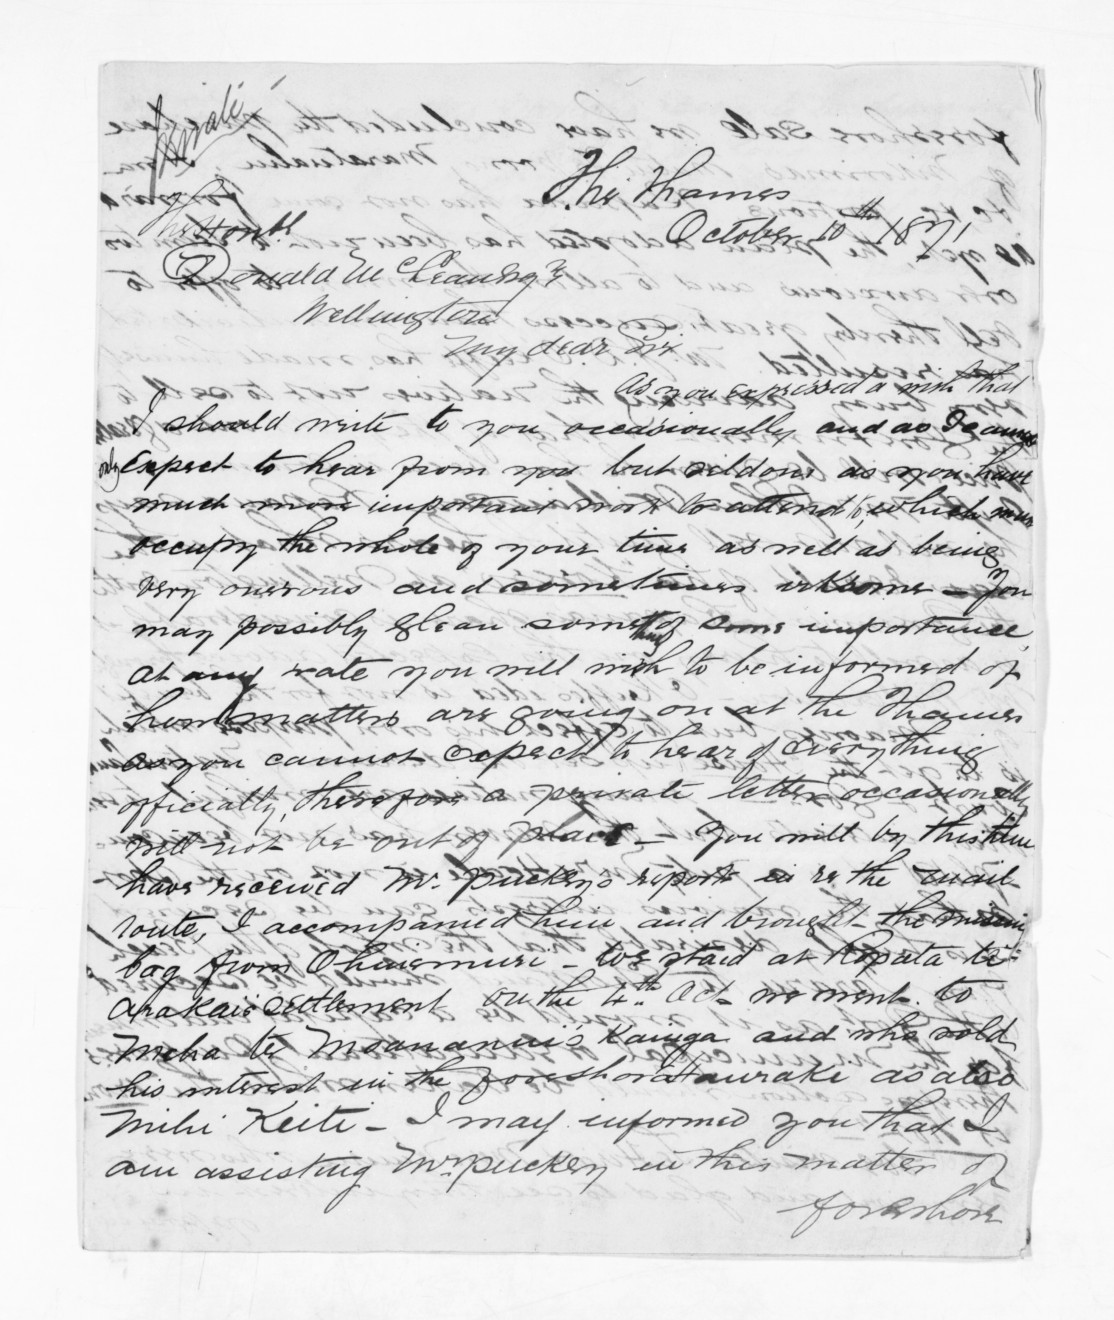 Private
The Thames
October 10th 1871
The Honble
Donald McLean Esqr
Wellington
My dear Sir
As you expressed a wish that
I should write to you occasionally and as I cannot
only expect to hear from you but seldom as you have
much more important work to attend to, which must
occupy the whole of your time as well as being
very onerous and sometimes irksome - you
may possibly glean something of some importance,
at any rate you will wish to be informed of
how matters are going on at the Thames
as you cannot expect to hear of everything
officially, therefore a private letter occasionally
will not be out of place - You will by this time
have received Mr. Puckey's report in re the mail
route, I accompanied him and brought the missing
bag from Ohinemuri - We staid at Ropata te
Arakai's settlement on the 4th Oct we went to
Meha te Moananui's Kainga and who sold
his interest in the foreshore Hauraki as also
Mihi Keiti - I may informed you that I
am assisting Mr Puckey in this matter of
foreshore